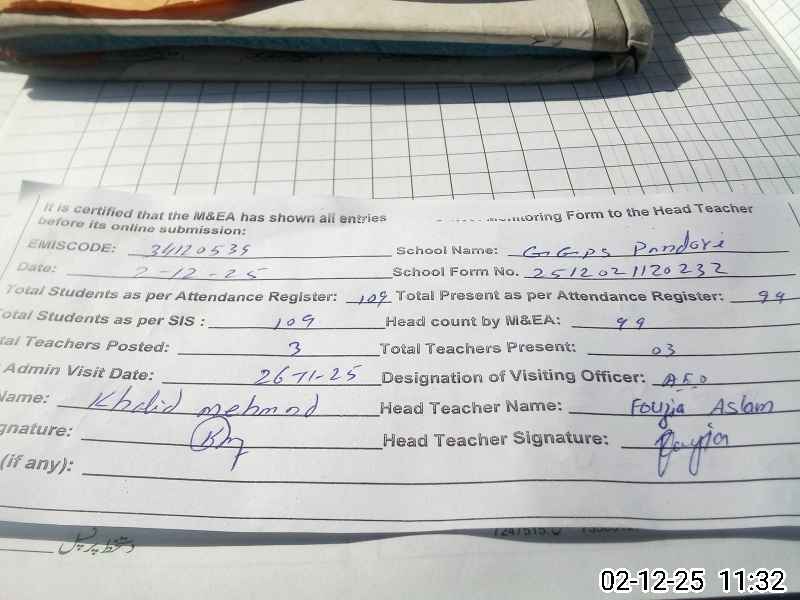 It is certified that the M&EA has shown all entries Monitoring Form to the Head Teacher
before its online submission:
EMISCODE: 34120535 School Name: GGPS Pandori
Date: 2-12-25 School Form No. 2512021120232
Total Students as per Attendance Register: 109 Total Present as per Attendance Register: 99
Total Students as per SIS : 109 Head count by M&EA: 99
tal Teachers Posted: 3 Total Teachers Present: 03
Admin Visit Date: 26-11-25 Designation of Visiting Officer: AEO
Name: Khalid mehmod Head Teacher Name: Fouzia Aslam
gnature: Km Head Teacher Signature: Fouzia
(if any):
دستخط پرنسپل
02-12-25 11:32